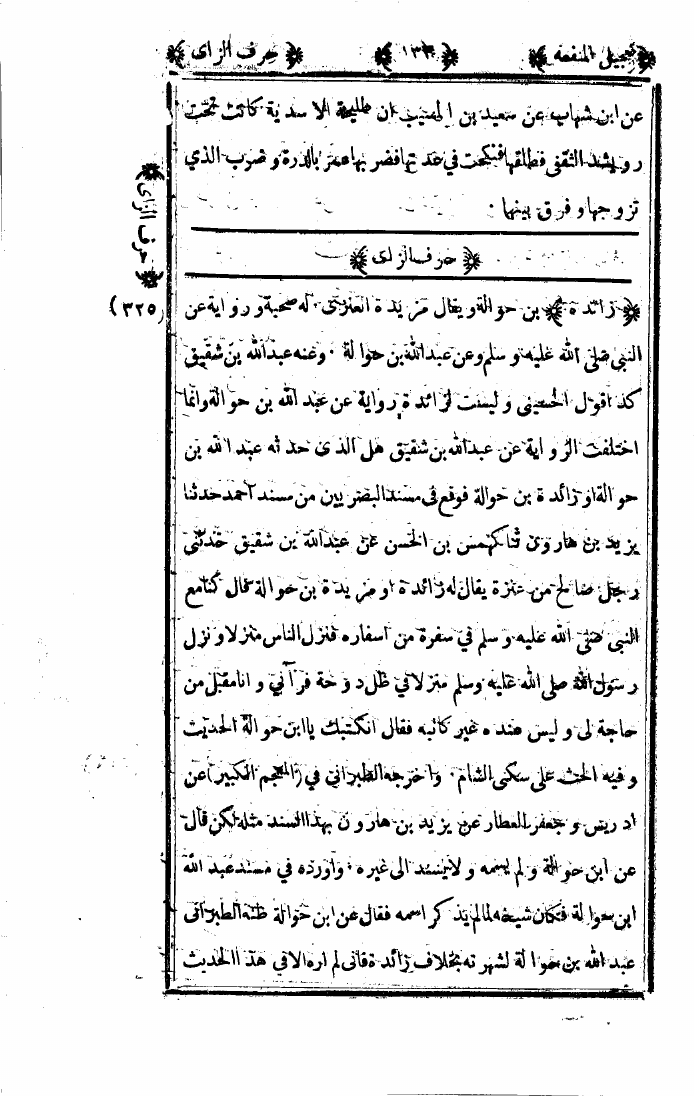 تعجيل المنفعة
حرف الزاى
عن ابن شهاب عن سعيد بن المسيب ان طليحة الاسدية كانت تحت
رويشد الثقفى فطلقها فنكحت في عدتها فضربها عمر بالدرة وضرب الذي
تزوجها وفرق بينها .
حرف الزاى
حرف الزاى
(٣٢٥)
زائدة بن حوالة ويقال مزيدة العنزى . له صحبة ورواية عن
النبي صلى الله عليه وسلم وعن عبدالله بن حوالة . وعنه عبدالله بن شقيق
كذا قول الحسينى وليست لزائدة رواية عن عبد الله بن حوالة وانما
اختلفت الرواية عن عبدالله بن شقيق هل الذى حدثه عبد الله بن
حوالة او زائدة بن حوالة فوقع فى مسند البصريين من مسند احمد حدثنا
يزيد بن هارون ثنا كهمس بن الحسن عن عبدالله بن شقيق حدثنى
رجل صالح من عنزة يقال له زائدة او مزيدة بن حوالة قال كنا مع
النبى صلى الله عليه وسلم في سفرة من اسفاره فنزل الناس منزلا ونزل
رسول الله صلى الله عليه وسلم منزلا في ظل دوحة فرآني وانا مقبل من
حاجة لى وليس عنده غير كاتبه فقال انكتبك يا ابن حوالة الحديث
وفيه الحث على سكنى الشام . واخرجه الطبراني في (المعجم الكبير) عن
ادريس وجعفر العطار عن يزيد بن هارون بهذا السند مثله لكن قال
عن ابن حوالة ولم يسمه ولا ينسبه الى غيره . واورده في مسند عبد الله
ابن حوالة فكان شيخه لما لم يذكر اسمه فقال عن ابن حوالة ظنه الطبرانى
عبد الله بن حوالة لشهرته بخلاف زائدة فانى لم اره الا في هذا الحديث